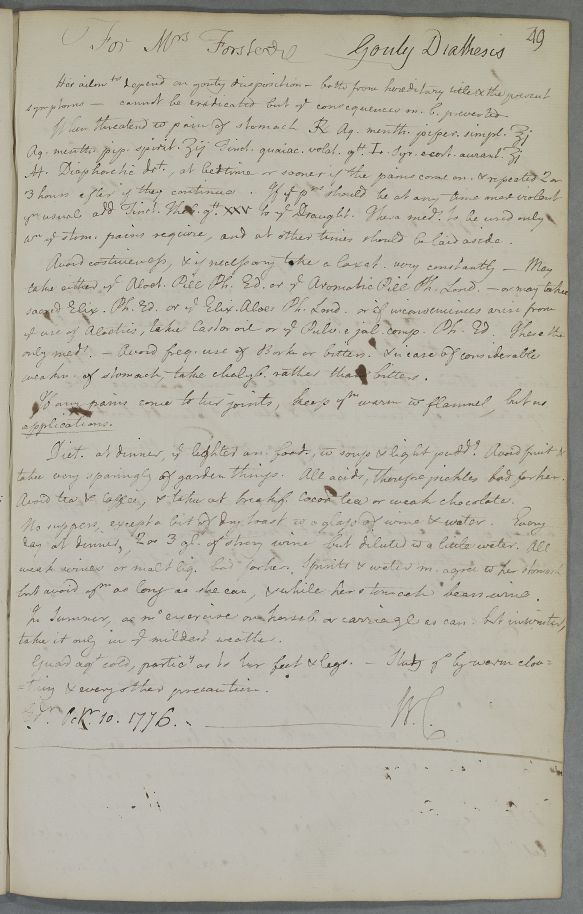 For Mrs Forster Gouty Diathesis 49
Her ailmts depend on gouty disposition - both from hereditary title & the present
symptoms - cannot be eradicated but ye consequences m. b. prevented.
When threatend wt pain of stomach ℞ Aq. menth. piper. simpl. ℥j
Aq. menth. pip. spirit. ʒij Tinct. guaiac. volat. gtt. L. Syr. e cort. aurant. ʒj
ft. Diaphoretic dt., at bedtime or sooner if the pains come on. & repeated 2 or
3 hours after if they continue. If ye pns should be at any time more violent
yn usual add Tinct. Theb. gtt. XXV to ye Draught. These medts. to be used only
wn ye stom. pains require, and at other times should be laid aside.
Avoid costiveness, & if necessary take a laxat. very constantly - May
take either ye Aloet. Pill Ph. Ed. or ye Aromatic Pill Ph. Lond. - or may take
sacred Elix. Ph. Ed. or ye Elix. Aloes Ph. Lond. or if inconveniences arise from
ye use of Aloetics, take Castor oil or ye Pulv. e jal. comp. Ph. Ed. These the
only medts. - Avoid freq. use of Bark or bitters. & in case of considerable
weakn. of stomach, take chalyb. rather than bitters.
If any pains come to her joints, keep ym warm wt flannel, but no
applications.
Diet. at dinner, ye lightest an. food, wt soup & light pudds. Avoid fruit &
take very sparingly of garden things. All acids, therefore pickles bad for her.
Avoid tea & Coffee, & take at breakft. Cocoa tea or weak chocolate.
No suppers, except a bit of dry toast wt a glass of wine & water. Every
day at dinner, 2 or 3 gl. of strong wine but diluted wt a little water. All
weak wines or malt liq. bad for her. Spirits & water m. agree wt her stomach
but avoid ym as long as she can, & while her stomach bears wine.
In Summer, as mc exercise on horseb. or carriage as can. but in winter,
take it only in ye mildest weather.
Guard agt cold, particy as to her feet & legs. - by warm cloa-
thing & every other precaution.
Edr. Octr. 10. 1776. W.C.